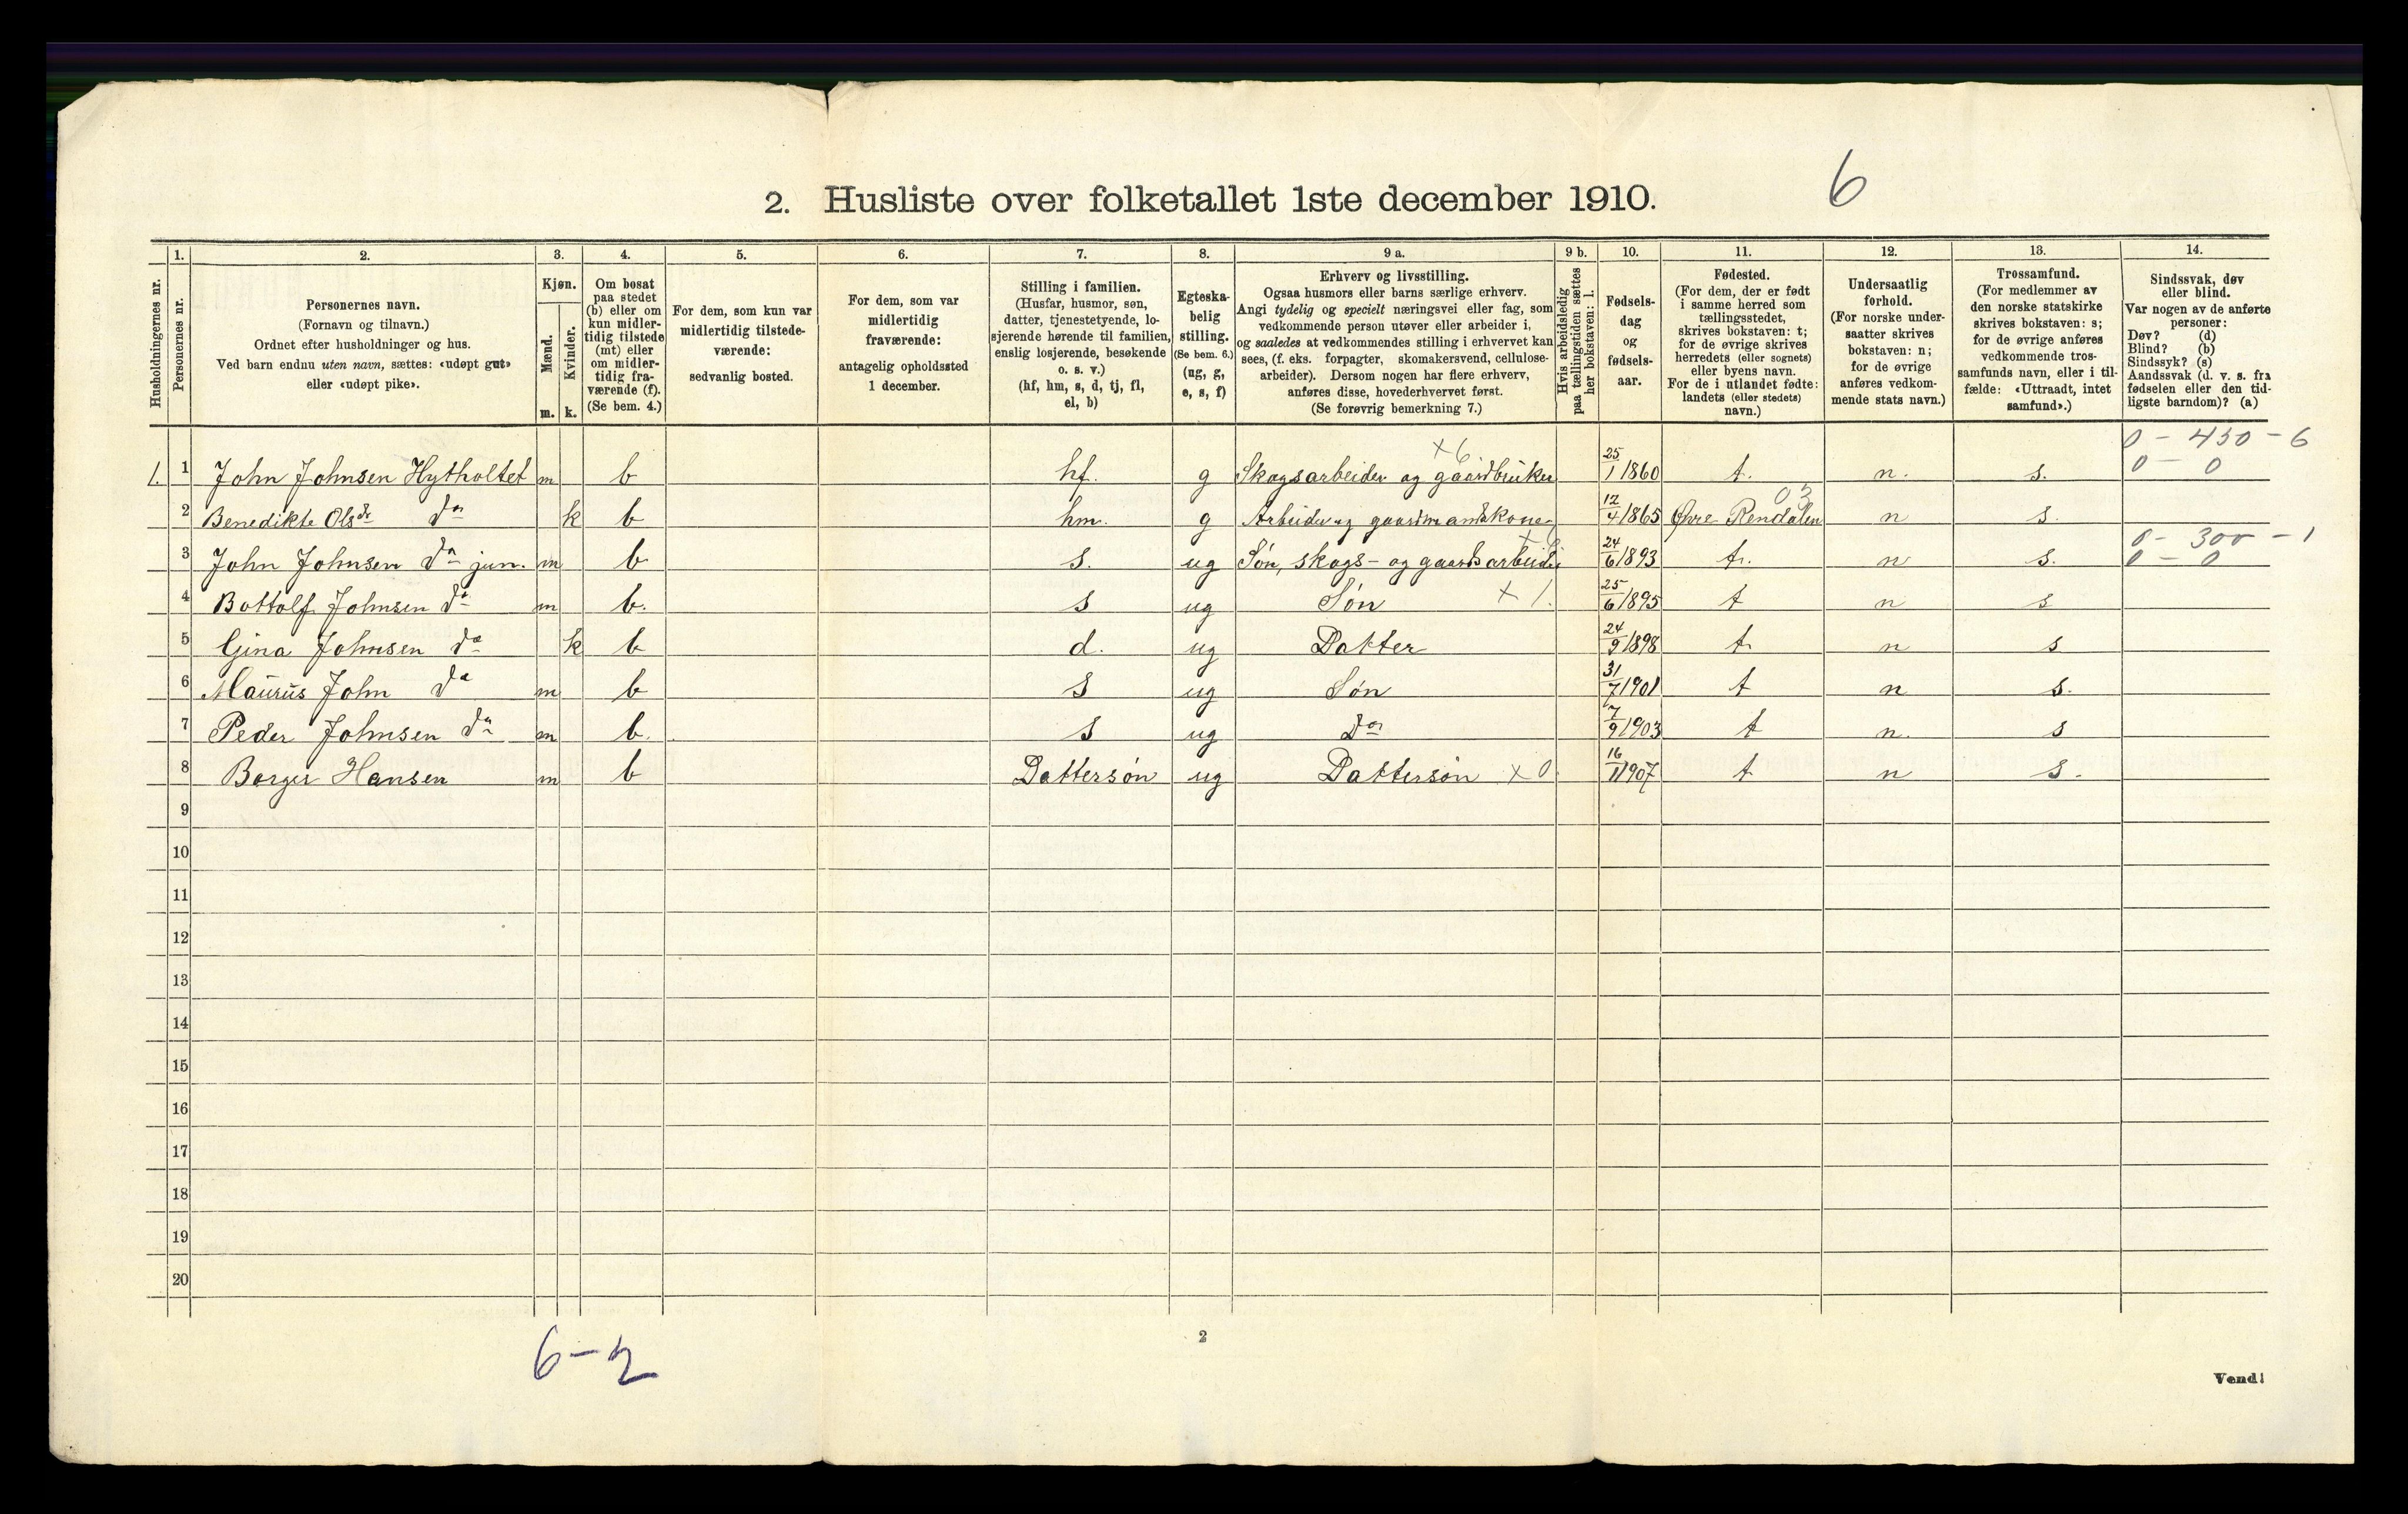 2. Husliste over folketallet 1ste december 1910. 6
Husholdningernes nr.
1. Personernes nr.
2. Personernes navn.
(Fornavn og tilnavn.)
Ordnet efter husholdninger og hus.
Ved barn endnu uten navn, sættes: «udøpt gut»
eller «udøpt pike».
3. Kjøn.
Mænd. m.
Kvinder. k.
4. Om bosat
paa stedet
(b) eller om
kun midler-
tidig tilstede
(mt) eller
om midler-
tidig fra-
værende (f).
(Se bem. 4.)
5. For dem, som kun var
midlertidig tilstede-
værende:
sedvanlig bosted.
6. For dem, som var
midlertidig
fraværende:
antagelig opholdssted
1 december.
7. Stilling i familien.
(Husfar, husmor, søn,
datter, tjenestetyende, lo-
sjerende hørende til familien,
enslig losjerende, besøkende
o. s. v.)
(hf, hm, s, d, tj, fl,
el, b)
8. Egteska-
belig
stilling.
(Se bem. 6.)
(ug, g,
e, s, f)
9 a. Erhverv og livsstilling.
Ogsaa husmors eller barns særlige erhverv.
Angi tydelig og specielt næringsvei eller fag, som
vedkommende person utøver eller arbeider i,
og saaledes at vedkommendes stilling i erhvervet kan
sees, (f. eks. forpagter, skomakersvend, cellulose-
arbeider). Dersom nogen har flere erhverv,
anføres disse, hovederhvervet først.
(Se forøvrig bemerkning 7.)
9 b. Hvis arbeidsledig
paa tællingstiden sættes
her bokstaven: l.
10. Fødsels-
dag
og
fødsels-
aar.
11. Fødested.
(For dem, der er født
i samme herred som
tællingsstedet,
skrives bokstaven: t;
for de øvrige skrives
herredets (eller sognets)
eller byens navn.
For de i utlandet fødte:
landets (eller stedets)
navn.)
12. Undersaatlig
forhold.
(For norske under-
saatter skrives
bokstaven: n;
for de øvrige
anføres vedkom-
mende stats navn.)
13. Trossamfund.
(For medlemmer av
den norske statskirke
skrives bokstaven: s;
for de øvrige anføres
vedkommende tros-
samfunds navn, eller i til-
fælde: «Uttraadt, intet
samfund».)
14. Sindssvak, døv
eller blind.
Var nogen av de anførte
personer:
Døv? (d)
Blind? (b)
Sindssyk? (s)
Aandssvak (d. v. s. fra
fødselen eller den tid-
ligste barndom)? (a)
x 6 0 - 450 - 6
1. 1 John Johnsen Hytholtet m b hf. g Skogsarbeider og gaardbruker 25/1 1860 t. n. s. 0 - 0
0 3
2 Benedikte Olsdr do k b hm. g Arbeider og gaardmandskone 12/4 1865 Øvre Rendalen n s.
0 - 300 - 1
3 John Johnsen do jun. m b s. ug Søn, skogs- og gaardsarbeider 24/6 1893 t. n s. 0 - 0
4 Bottolf Johnsen do m b. s ug Søn x 1. 25/6 1895 t n s
5 Gina Johnsen do k b d. ug Datter 24/9 1898 t. n s
6 Maurus John do m b s ug Søn 31/7 1901 t n s.
7 Peder Johnsen do m b. s ug do 7/9 1903 t n. s
8 Borger Hansen m b Dattersøn ug Dattersøn x 0 16/11 1907 t n s.
9
10
11
12
13
14
15
16
17
18
19
20
6-2
2
Vend!